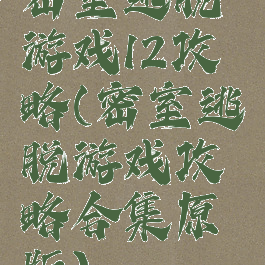 密室逃脱
游戏12攻
略(密室逃
脱游戏攻
略合集原
版)